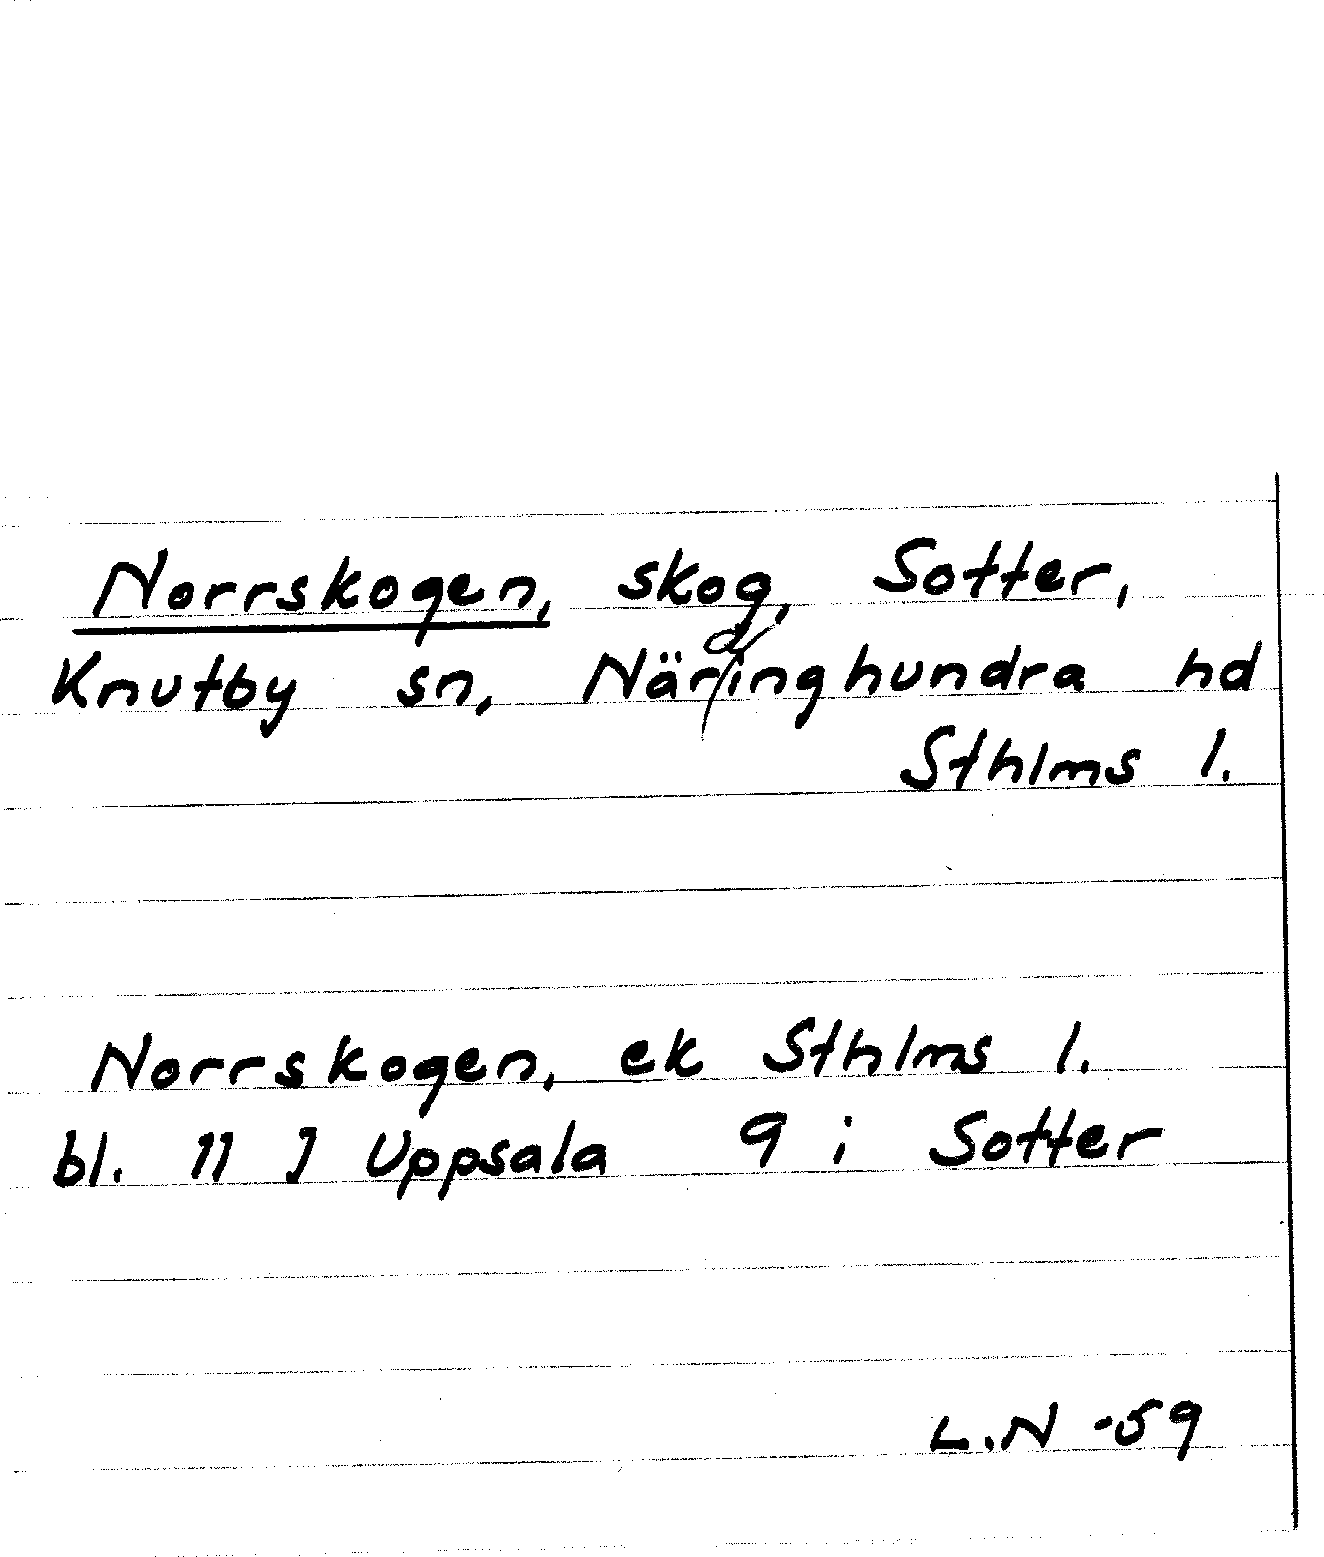 Norrskogen, skog, Sotter,
Knutby sn, Närdinghundra hd
Sthlms l.
Norrskogen, ek Sthlms l.
bl. 11 J Uppsala 9 i Sotter
L.N -59